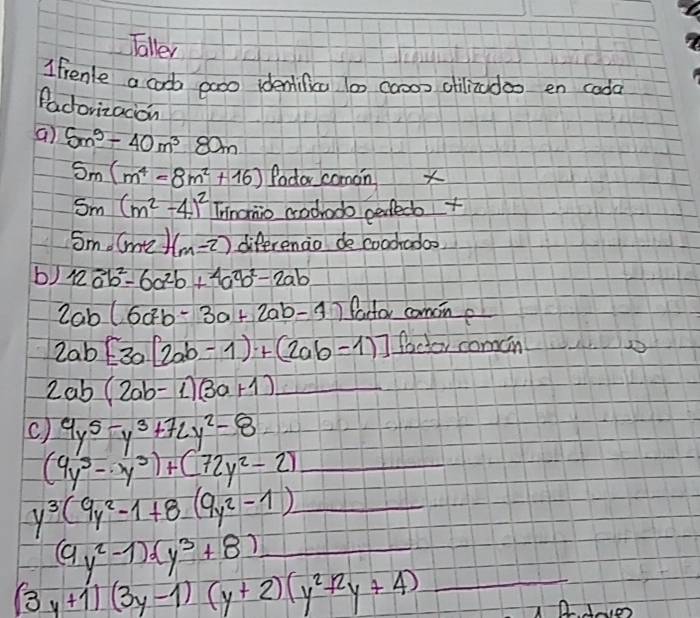 Taller
1 frente a cada paso identifica los casos utilizados en cada
factorización
a) 5m⁵ - 40m³ 80m
5m (m⁴ - 8m² + 16) factor común x
5m (m² - 4)² Trinomio cuadrado perfecto +
5m (m+2)(m-2) diferencia de cuadrados
b) 12ab² - 6a²b + 4a²b² - 2ab
2ab (6a²b - 3a + 2ab - 1) factor común
2ab [3a [2ab - 1) + (2ab - 1)] factor común
2ab (2ab - 1)(3a + 1)
c) 9y⁵ - y³ + 72y² - 8
(9y⁵ - y³) + (72y² - 2)
y³ (9y² - 1 + 8 (9y² - 1)
(9y² - 1)(y³ + 8)
(3y + 1) (3y - 1) (y + 2) (y² + 2y + 4)